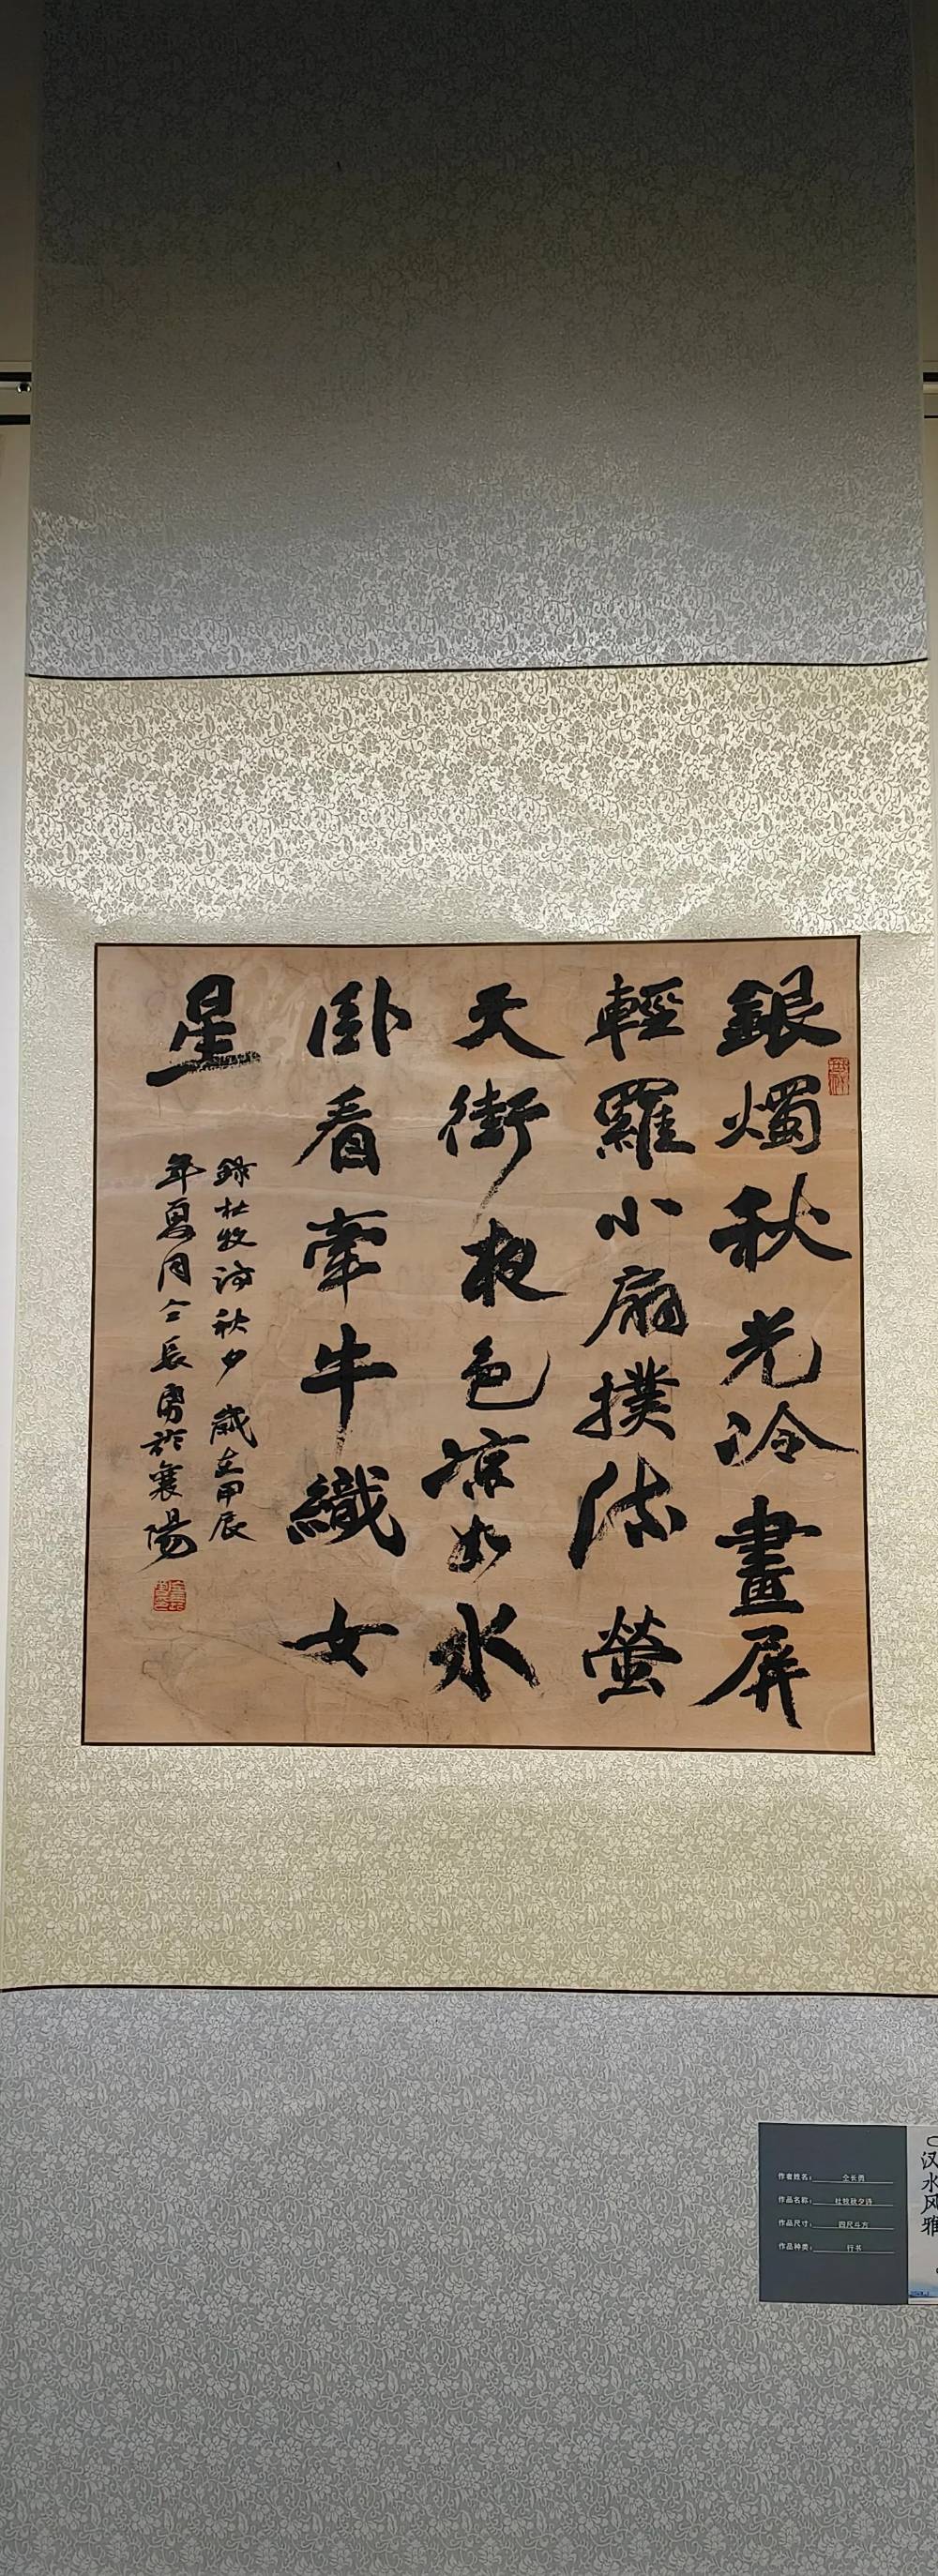 銀燭秋光冷畫屏
輕羅小扇撲流螢
天街夜色凉如水
卧看牽牛織女
星
錄杜牧詩秋夕歲在甲辰
年夏月仝長勇於襄陽
作者姓名：仝长勇
作品名称：杜牧秋夕诗
作品尺寸：四尺斗方
作品种类：行书
汉水风雅